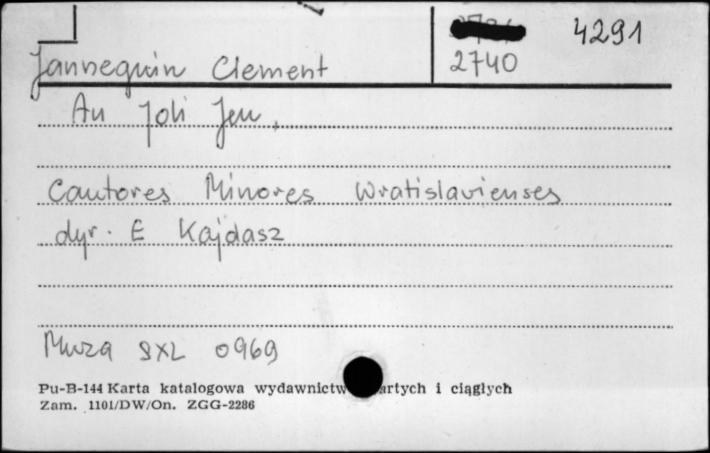 4291
Jannequin Clement 2740
Au Joli Jeu,
Cantores Minores Wratislavienses
dyr. E Kajdasz
Muza SXL 0969
Pu-B-144 Karta katalogowa wydawnictw i ciągłych
Zam. 1101/DW/On. ZGG-2286